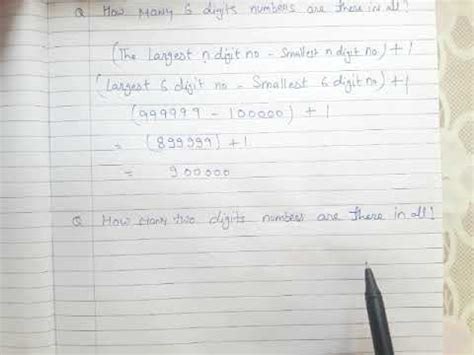 Q How many 6 digits numbers are there in all?
(The Largest n digit no - Smallest n digit no) + 1
(Largest 6 digit no - Smallest 6 digit no) + 1
(999999 - 100000) + 1
= (899999) + 1
= 900000
Q How many two digits numbers are there in all?